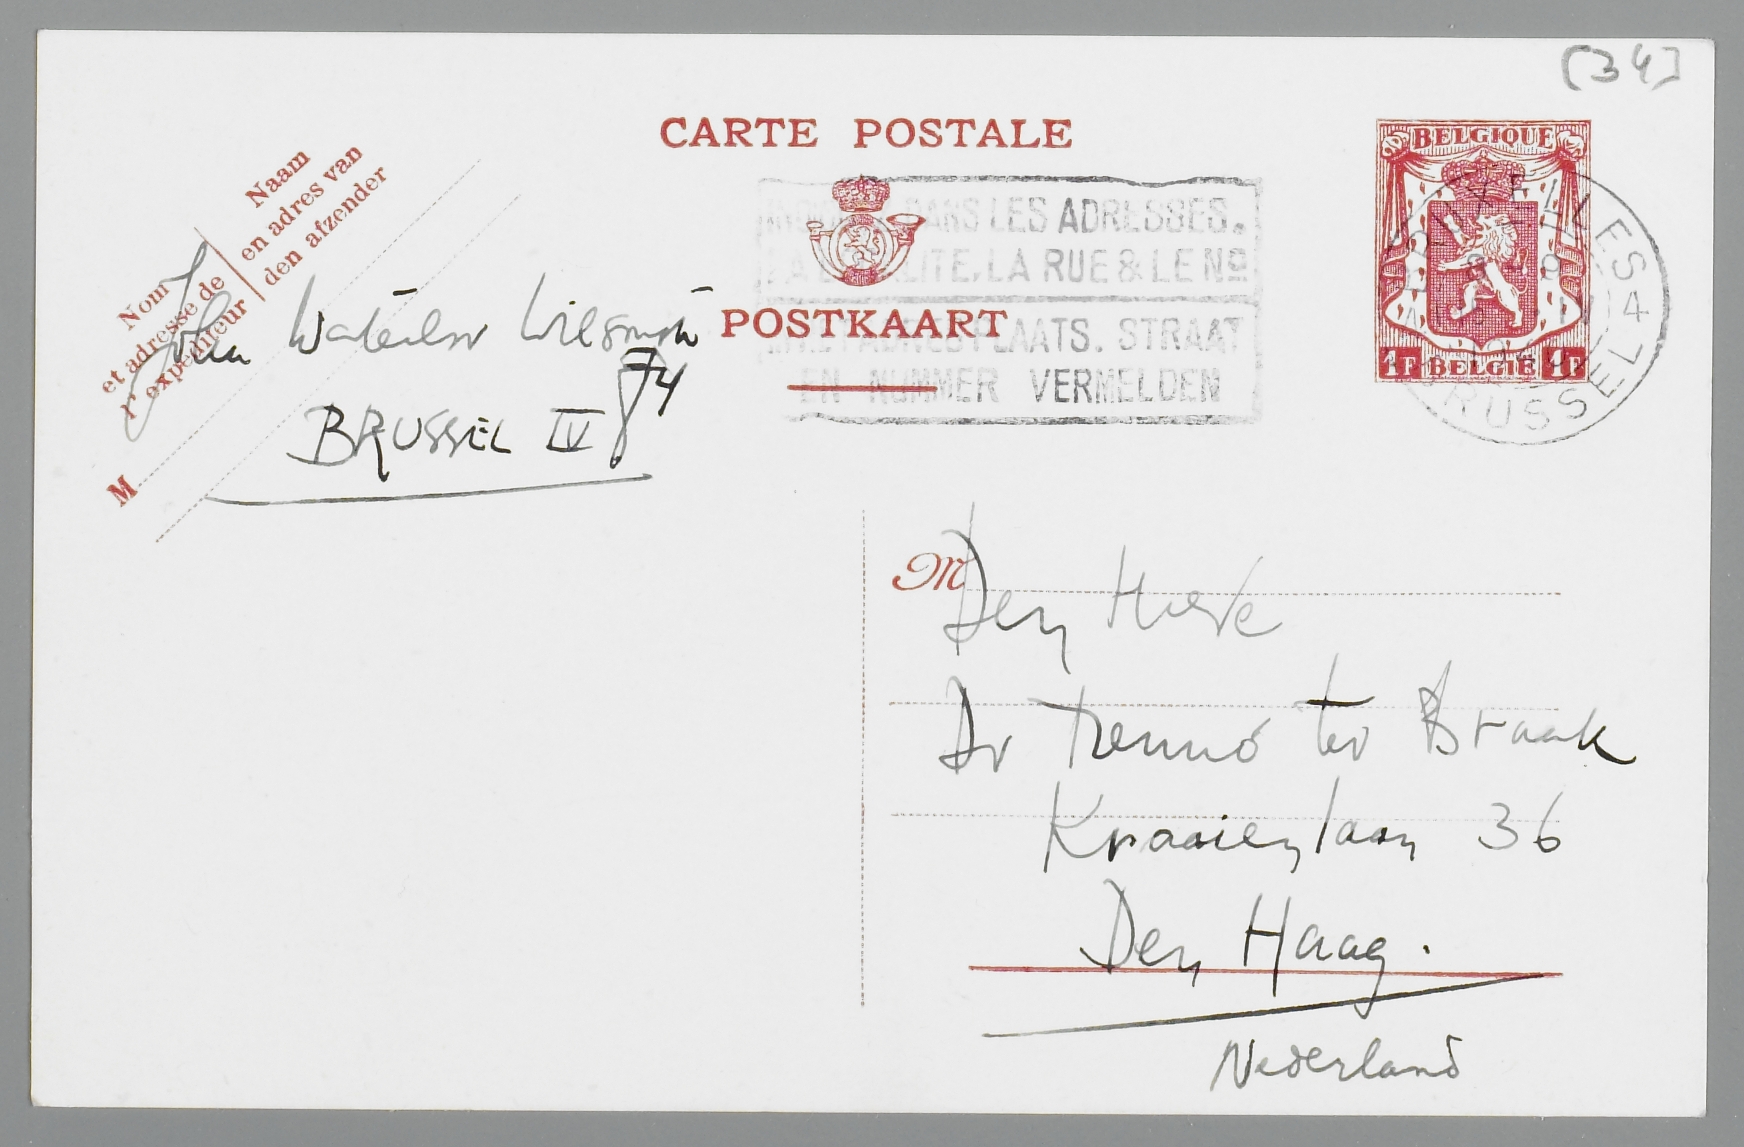 [34]
CARTE POSTALE
BELGIQUE
1F BELGIË 1F
Naam
en adres van
den afzender
Nom
et adresse de
l'expéditeur
M
DANS LES ADRESSES.
LA LOCALITE, LA RUE & LE No
POSTKAART
PLAATS. STRAAT
EN NUMMER VERMELDEN
BRUXELLES 4
BRUSSEL
74
BRUSSEL IV
M
Den Heere
Dr Menno ter Braak
Kraaienlaan 36
Den Haag.
Nederland